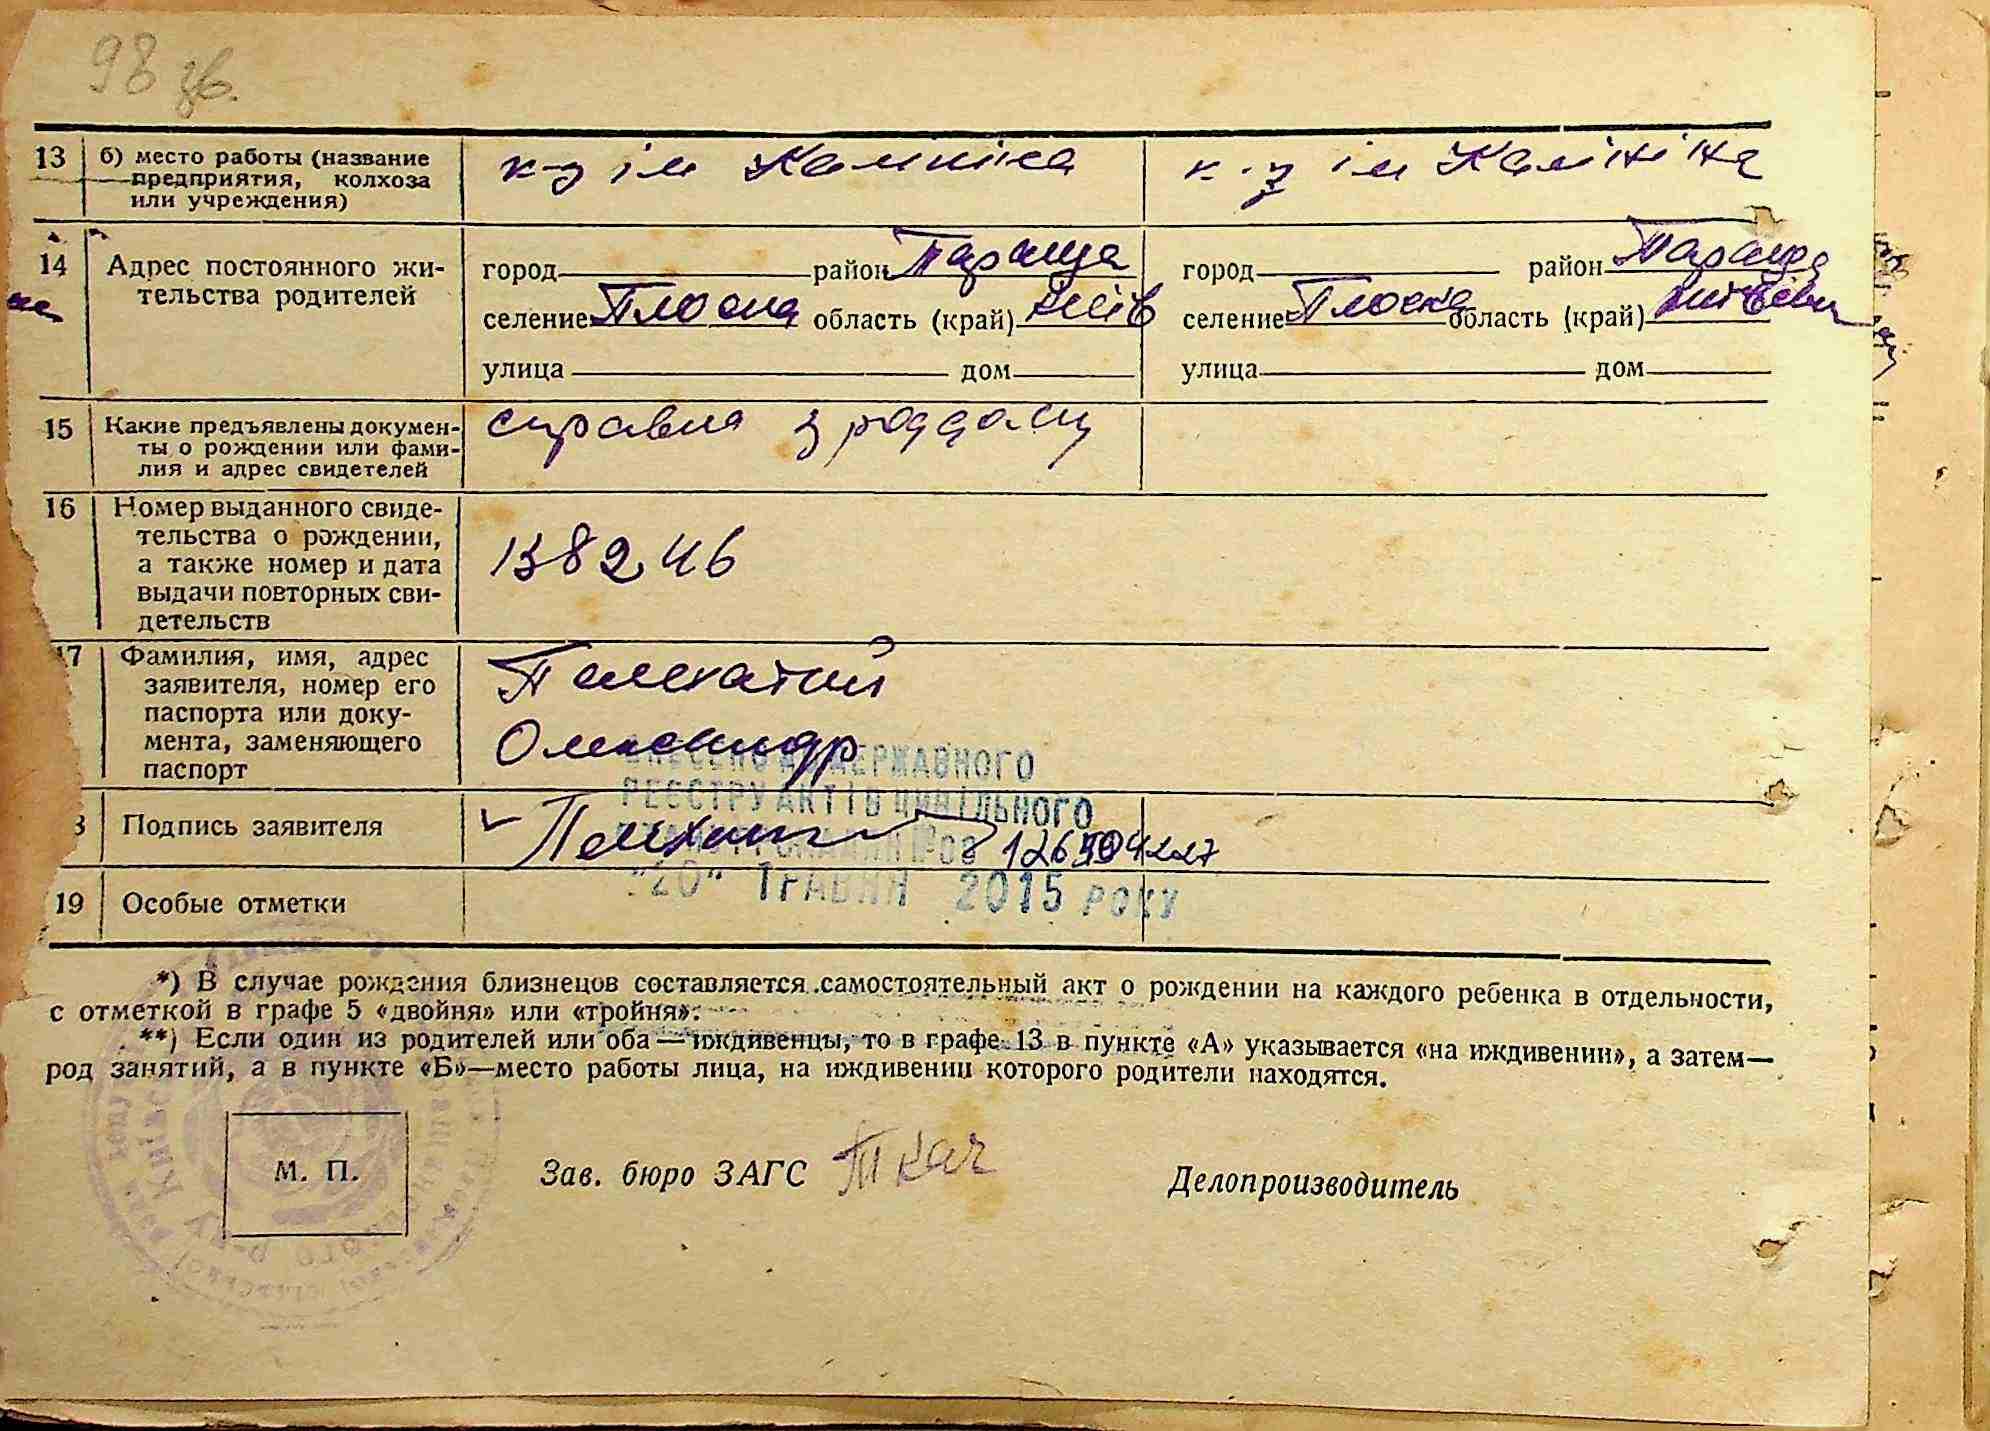 98 зв.
13 б) место работы (название предприятия, колхоза или учреждения) к-з ім Калініна к-з ім Калініна
14 Адрес постоянного жи-
тельства родителей
город район Тараща город район Тараща
селение Плоска область (край) Київ селение Плоска область (край)
улица дом улица дом
15 Какие предъявлены докумен-
ты о рождении или фами-
лия и адрес свидетелей
справка з роддому
16 Номер выданного свиде-
тельства о рождении,
а также номер и дата
выдачи повторных сви-
детельств
138246
17 Фамилия, имя, адрес
заявителя, номер его
паспорта или доку-
мента, заменяющего
паспорт
Пелехатий
Олександр
ВНЕСЕНО ДО ДЕРЖАВНОГО
РЕЄСТРУ АКТІВ ЦИВІЛЬНОГО
Подпись заявителя
"20" ТРАВНЯ 2015 РОКУ
19 Особые отметки
*) В случае рождения близнецов составляется самостоятельный акт о рождении на каждого ребенка в отдельности,
с отметкой в графе 5 «двойня» или «тройня».
**) Если один из родителей или оба — иждивенцы, то в графе 13 в пункте «А» указывается «на иждивении», а затем—
род занятий, а в пункте «Б»—место работы лица, на иждивении которого родители находятся.
М. П.
Зав. бюро ЗАГС Ткач Делопроизводитель